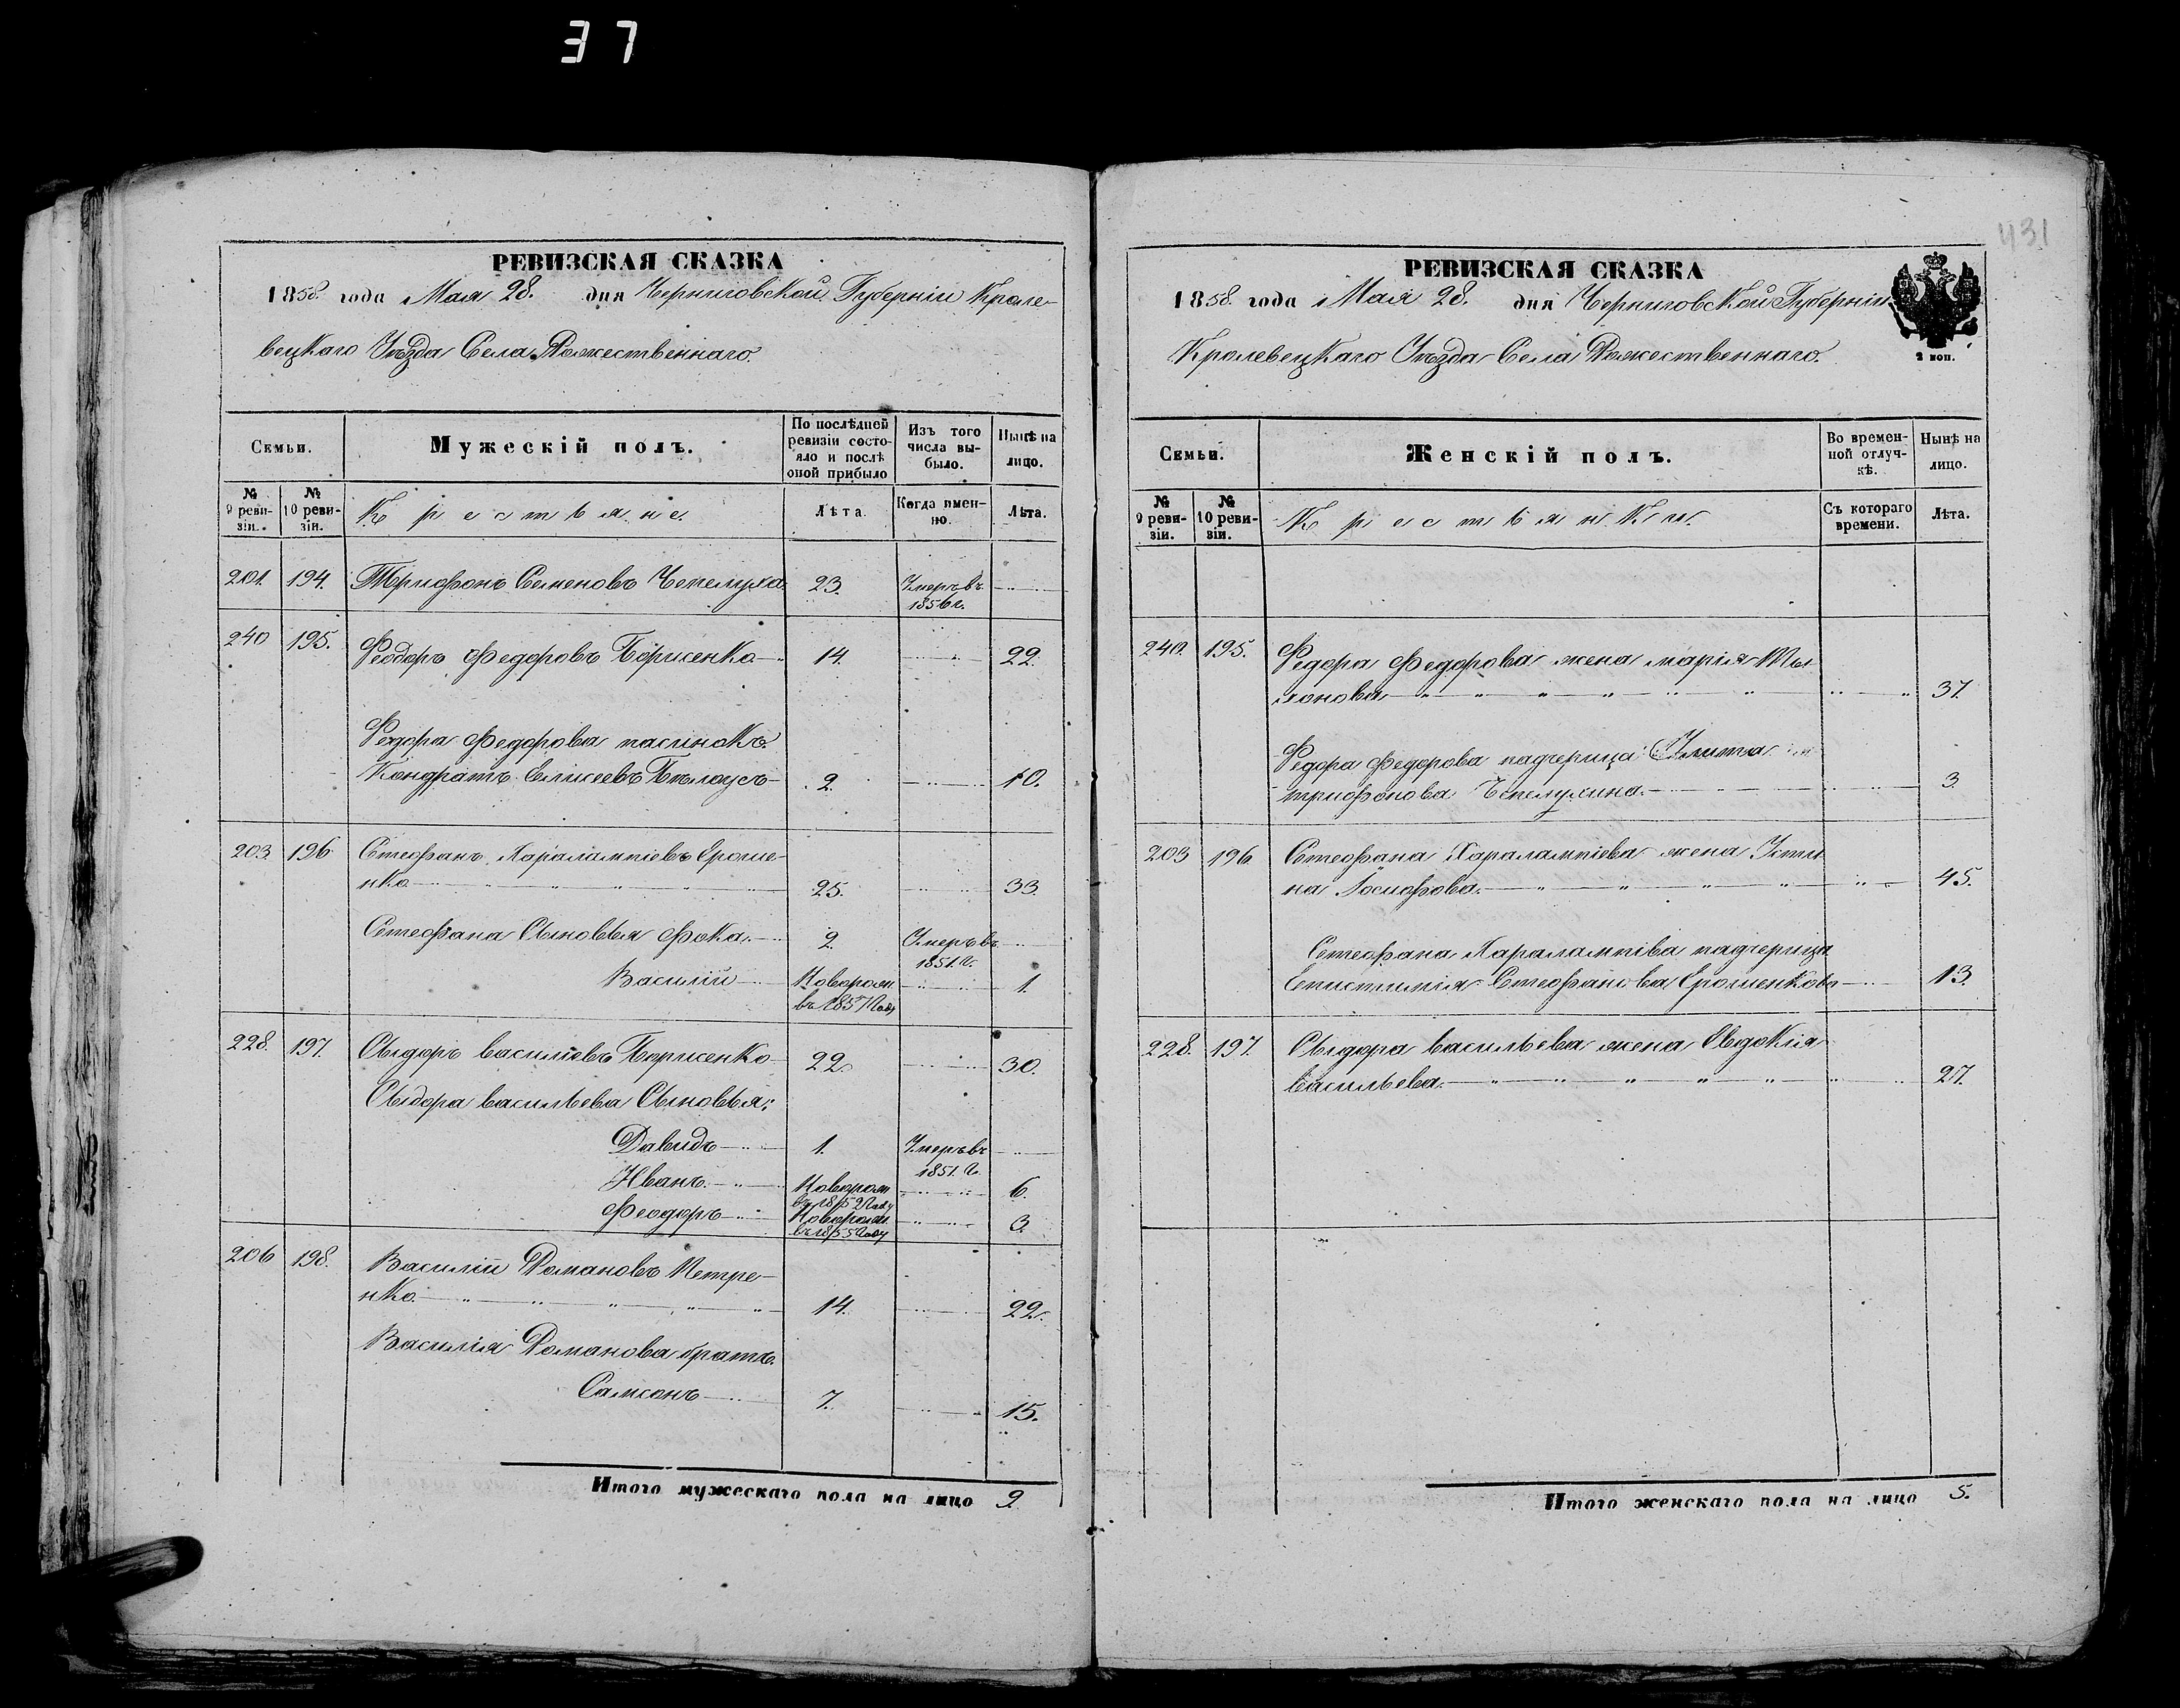 37
РЕВИЗСКАЯ СКАЗКА
1858. года Мая 28. дня Черниговской Губерніи Кроле-
вецкаго Уѣзда Села Рожественнаго.
Семьи. Мужескій полъ. По послѣдней ревизіи состо-яло и послѣ оной прибыло Изъ того числа вы-было. Нынѣ на лицо.
№ 9 реви-зіи. № 10 реви-зіи. Крестьяне. Лѣта. Когда имен-но. Лѣта.
201. 194. Трифонъ Семеновъ Чепелуха 23. Умеръ въ
1856 г.
240 195. Феодоръ Федоровъ Борисенко 14. 22.
Федора Федорова пасинокъ
Кондратъ Елисеевъ Бѣлоусъ 2. 10.
203. 196 Стефанъ Харалампіевъ Ероше-
нко 25. 33.
Стефана Сыновья Фока 2. Умеръ въ
1851. г.
Василій Новорож. 1.
въ 1857 году
228. 197. Сыдоръ Василіевъ Борисенко 22. 30.
Сыдора Васильева Сыновья:
Давидъ 1. Умеръ въ
1851. г.
Иванъ Новорож 6.
въ 1852 году
Феодоръ Новорож. 3.
въ 1855 году
206 198. Василій Романовъ Петре-
нко 14. 22.
Василія Романова братъ
Самсонъ 7. 15.
Итого мужескаго пола на лицо 9.
431
РЕВИЗСКАЯ СКАЗКА
1858. года Мая 28. дня Черниговской Губерніи
Кролевецкаго Уѣзда Села Рожественнаго.
2 коп.
Семьи. Женскій полъ. Во времен-ной отлуч-кѣ. Нынѣ на лицо.
№ 9 реви-зіи. № 10 реви-зіи. Крестьянки. Съ котораго времени. Лѣта.
240. 195. Федора Федорова жена Марія
37.
Федора Федорова падчерица
Трифонова Чепелухина 3.
203 196. Стефана Харалампіева жена Усти-
на Іосифова 45.
Стефана Харалампіва падчерица
Епистимія Стефанова Ерошенкова 13.
228. 197. Сыдора Васильева жена Евдокія
Васильева 27.
Итого женскаго пола на лицо 5.